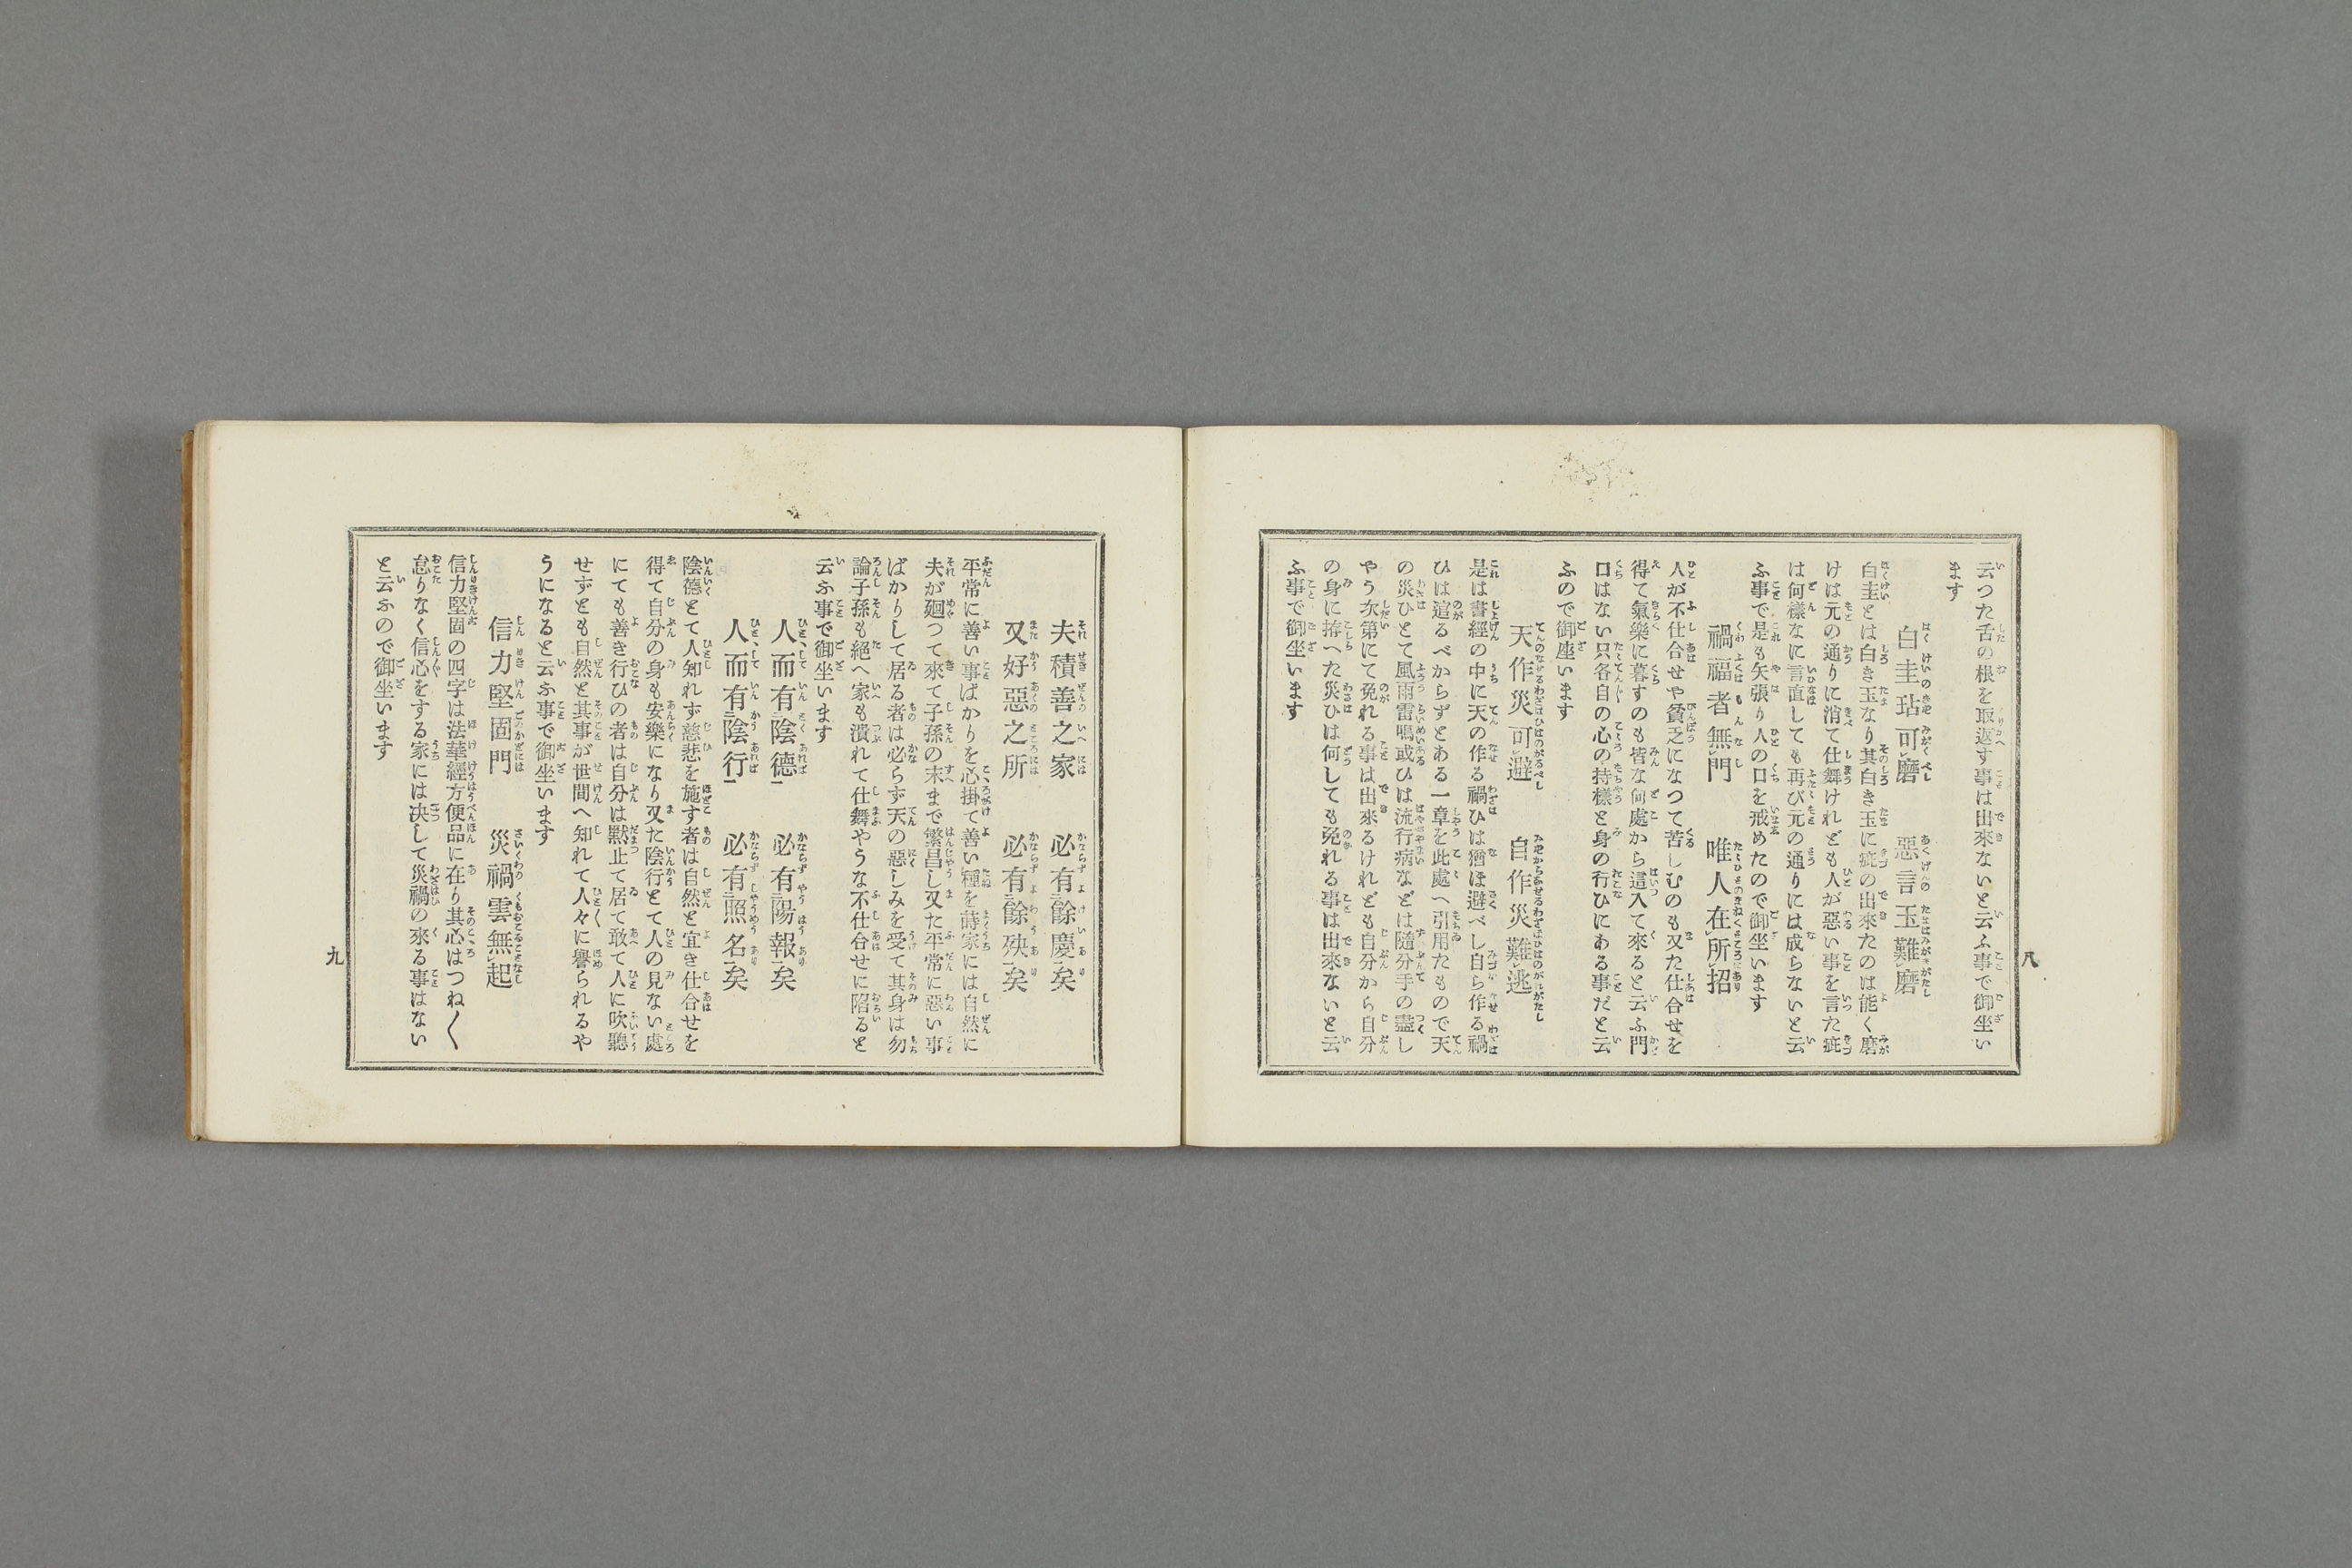 云つた舌の根を取返す事は出來ないと云ふ事で御坐い
ます
白圭玷可磨　惡言玉難磨
白圭とは白き玉なり其白き玉に疵の出來たのは能く磨
けは元の通りに消て仕舞けれども人が惡い事を言た疵
は何樣なに言直しても再び元の通りには成らないと云
ふ事で是も矢張り人の口を戒めたので御坐います
禍福者無門　唯人在所招
人が不仕合せや貧乏になつて苦しむのも又た仕合せを
得て氣樂に暮すのも皆な何處から這入て來ると云ふ門
口はない只各自の心の持樣と身の行ひにある事だと云
ふので御座います
天作災可避　自作災難逃
是は書經の中に天の作る禍ひは猶ほ避べし自ら作る禍
ひは逭るべからずとある一章を此處へ引用たもので天
の災ひとて風雨雷鳴或ひは流行病などは隨分手の盡し
やう次第にて免れる事は出來るけれども自分から自分
の身に拵へた災ひは何しても免れる事は出來ないと云
ふ事で御坐います
八
夫積善之家　必有餘慶矣
又好惡之所　必有餘殃矣
平常に善い事ばかりを心掛て善い種を蒔家には自然に
夫が廻つて來て子孫の末まで繁昌し又た平常に惡い事
ばかりして居る者は必らず天の惡しみを受て其身は勿
論子孫も絕へ家も潰れて仕舞やうな不仕合せに陷ると
云ふ事で御坐います
人而有陰德　必有陽報矣
人而有陰行　必有照名矣
陰德とて人知れず慈悲を施す者は自然と宜き仕合せを
得て自分の身も安樂になり又た陰行とて人の見ない處
にても善き行ひの者は自分は默止て居て敢て人に吹聽
せずとも自然と其事が世間へ知れて人々に譽られるや
うになると云ふ事で御坐います
信力堅固門　災禍雲無起
信力堅固の四字は法華經方便品に在り其心はつね〱
怠りなく信心をする家には决して災禍の來る事はない
と云ふので御坐います
九